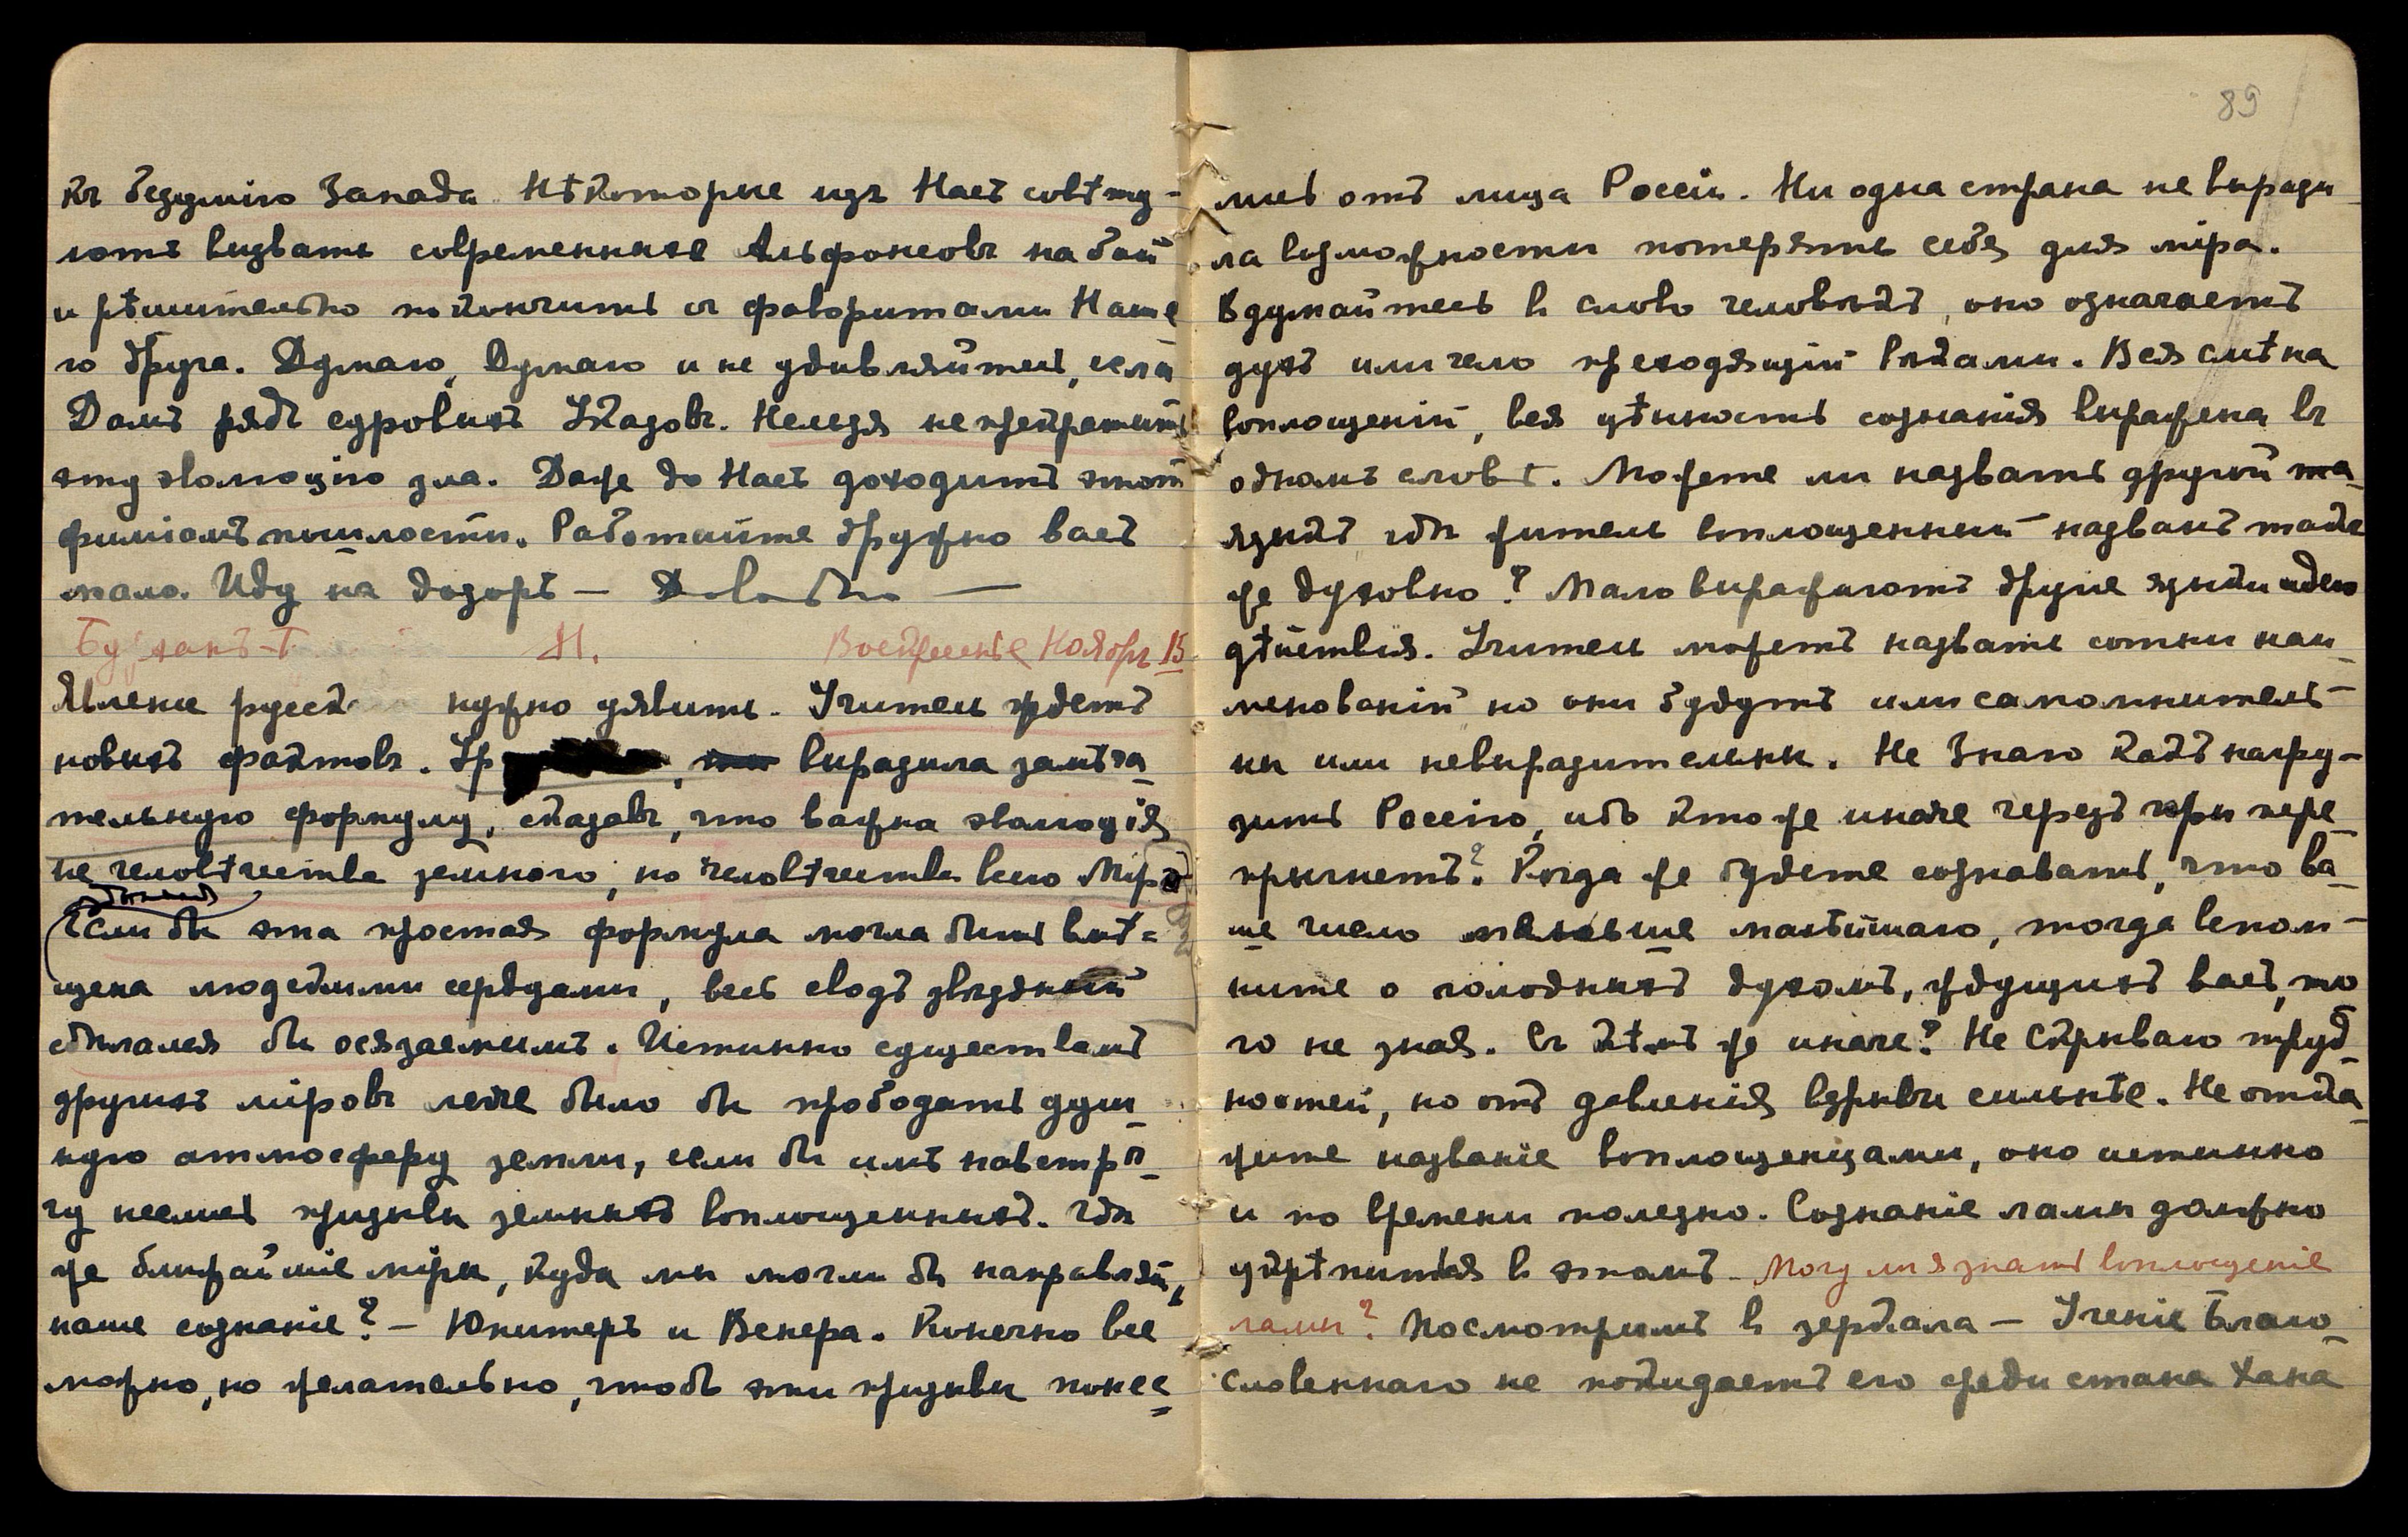 къ безумію Запада. Нѣкоторые изъ Насъ совѣту-
ютъ вызвать современныхъ Альфонсовъ на бой
и рѣшительно покончить съ фаворитами Наше
го друга. Думаю, Думаю и не удивляйтесь, если
Дамъ рядъ суровыхъ Указовъ. Нельзя не прекратить
эту эволюцію зла. Даже до Насъ доходитъ этотъ
фиміамъ пошлости. Работайте дружно васъ
мало. Иду на дозоръ — Довольно —
М. Воскресенье Ноябрь 15
Явленіе русск нужно уявить. Учитель ждетъ
новыхъ фактовъ. Ур , выразила замѣча
тельную формулу, сказавъ, что важна эволюція
не человѣчества земного, но человѣчества всего Міра
Если бы эта простая формула могла быть вмѣ=
щена людскими сердцами, весь сводъ звѣздный
сдѣлался бы осязаемымъ. Истинно существамъ
другихъ міровъ легче было бы прободать душ
ную атмосферу земли, если бы имъ навстрѣ
чу неслись призывы земныхъ воплощенныхъ. Гдѣ
же ближайшіе міры, куда мы могли бы направлять
наше сознаніе? — Юпитеръ и Венера. Конечно все
можно, но желательно, чтобъ эти призывы понес
89
лись отъ лица Россіи. Ни одна страна не вырази
ла возможности потерять себя для міра.
Вдумайтесь в слово человѣкъ, оно означаетъ
духъ или чело преходящій вѣками. Вся смѣна
воплощеній, вся цѣнность сознанія выражена въ
одномъ словѣ. Можете ли назвать другой
языкъ гдѣ житель воплощенный названъ такъ
же духовно? Мало выражаютъ другіе языки идею
дѣйствія. Учитель можетъ назвать сотни наи
менованій но они будутъ или самомнитель-
ны или невыразительны. Не Знаю какъ нагру-
зить Россію, ибо кто же иначе черезъ при пере
прыгнетъ? Когда же будете сознавать, что ва
ше число меньше малѣйшаго, тогда вспом-
ните о голодныхъ духомъ, ждущихъ васъ, то
го не зная. Съ кѣмъ же иначе? Не Скрываю труд
ностей, но отъ давленія взрывы сильнѣе. Не отка
жите названіе воплощенцами, оно истинно
и по времени полезно. Сознаніе ламы должно
укрѣпиться в этомъ. Могу ли я знать воплощеніе
ламы? Посмотримъ в зеркала — Ученіе Благо
словеннаго не покидаетъ его среди стана Хана